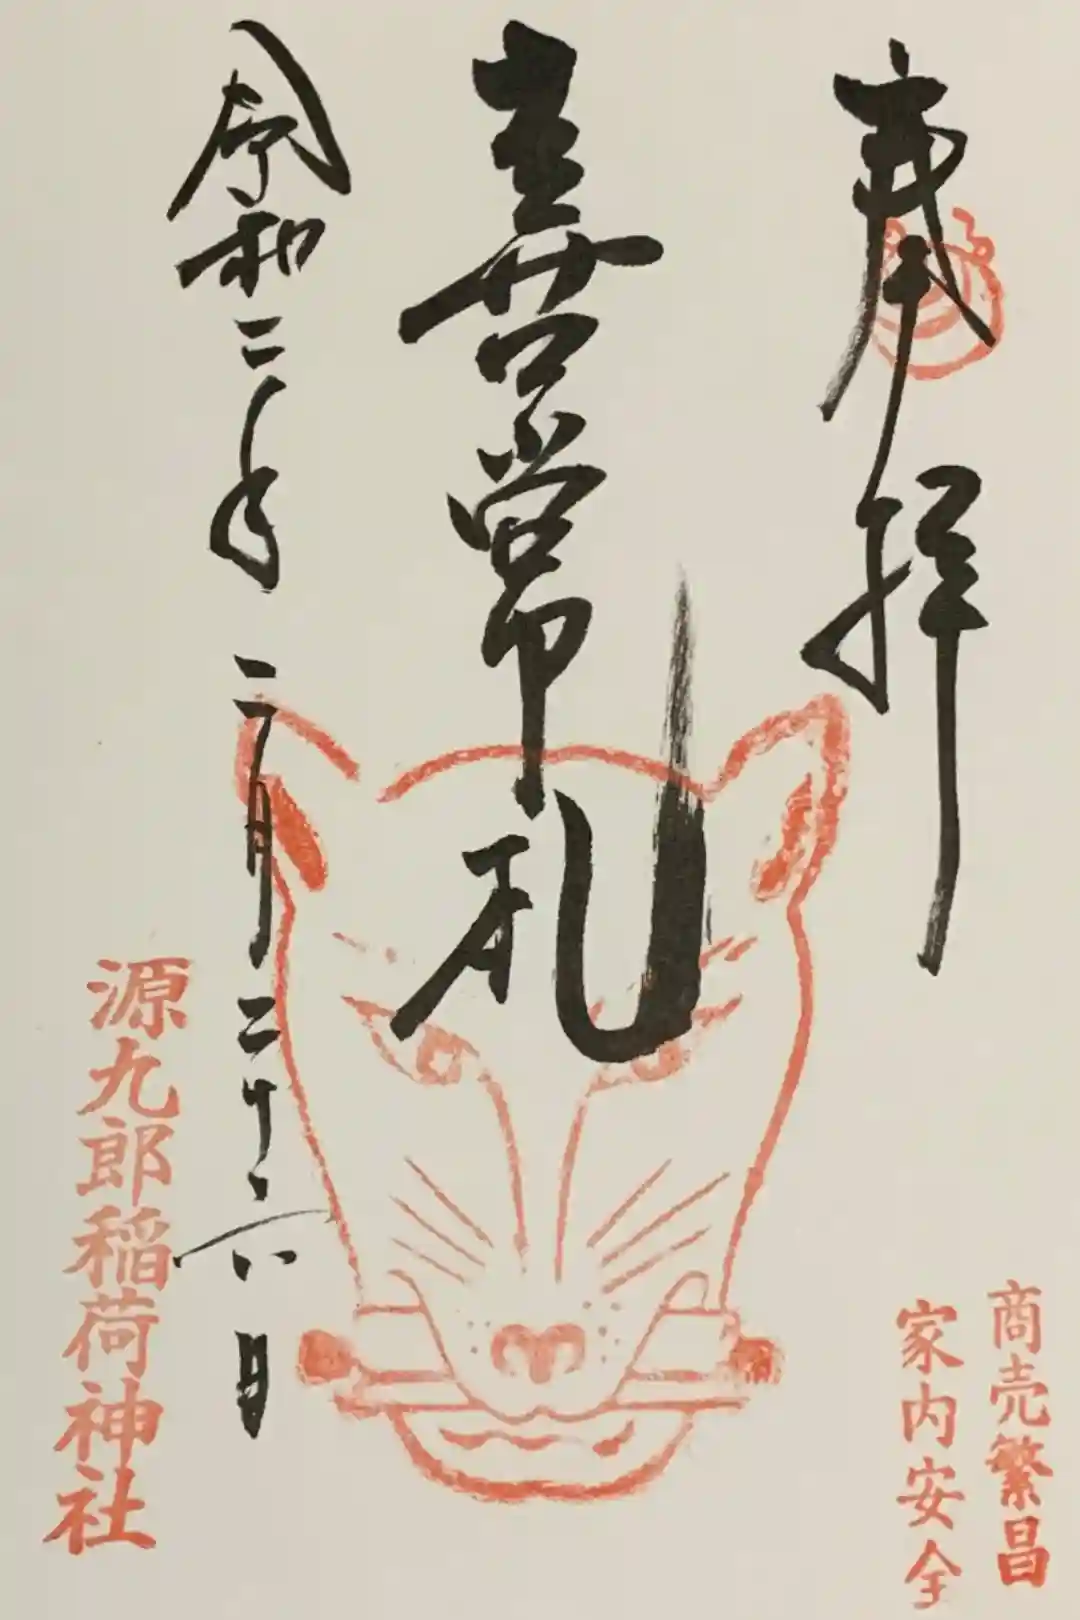 奉拝
商売繁昌
家内安全
喜常礼
令和二年二月二十六日
源九郎稲荷神社